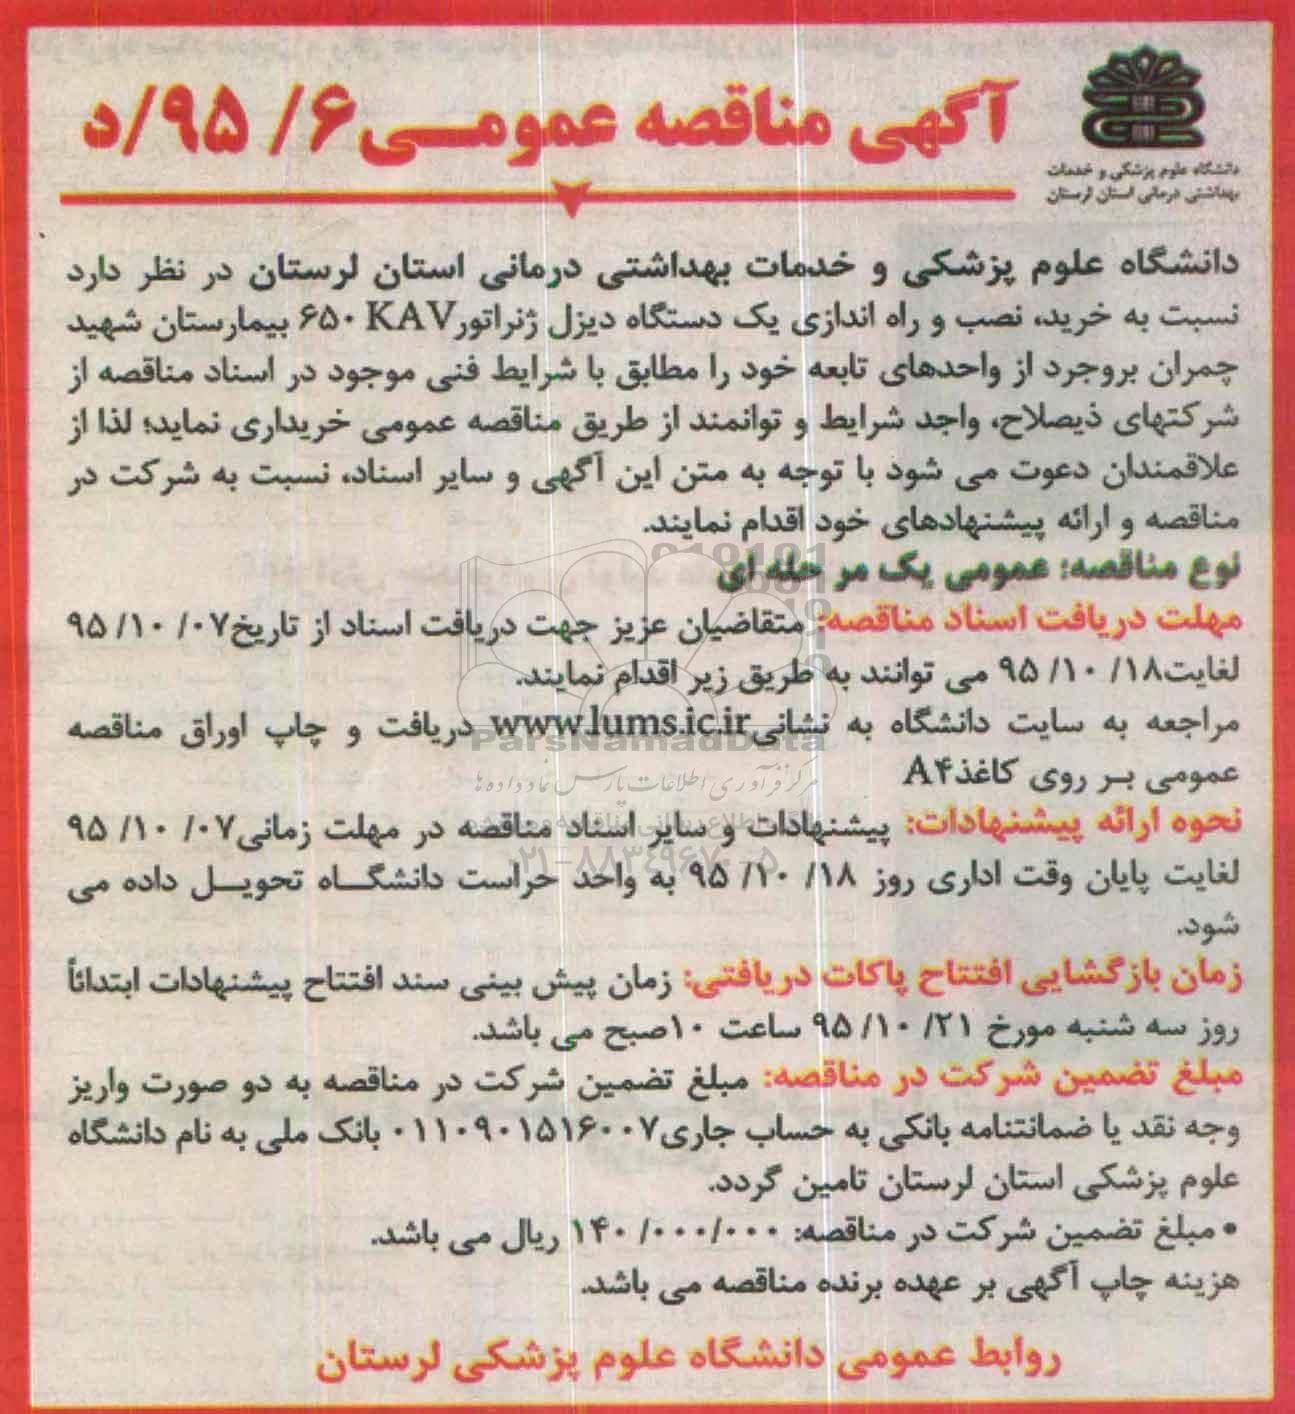 آگهی مناقصه عمومی ۶/ ۹۵/د
دانشگاه علوم پزشکی و خدمات
بهداشتی درمانی استان لرستان
دانشگاه علوم پزشکی و خدمات بهداشتی درمانی استان لرستان در نظر دارد
نسبت به خرید، نصب و راه اندازی یک دستگاه دیزل ژنراتور ۶۵۰ KAV بیمارستان شهید
چمران بروجرد از واحدهای تابعه خود را مطابق با شرایط فنی موجود در اسناد مناقصه از
شرکتهای ذیصلاح، واجد شرایط و توانمند از طریق مناقصه عمومی خریداری نماید؛ لذا از
علاقمندان دعوت می شود با توجه به متن این آگهی و سایر اسناد، نسبت به شرکت در
مناقصه و ارائه پیشنهادهای خود اقدام نمایند.
نوع مناقصه: عمومی یک مرحله ای
مهلت دریافت اسناد مناقصه: متقاضیان عزیز جهت دریافت اسناد از تاریخ ۰۷/ ۱۰/ ۹۵
لغایت ۱۸/ ۱۰/ ۹۵ می توانند به طریق زیر اقدام نمایند.
مراجعه به سایت دانشگاه به نشانی www.lums.ic.ir دریافت و چاپ اوراق مناقصه
عمومی بر روی کاغذ A۴
نحوه ارائه پیشنهادات: پیشنهادات و سایر اسناد مناقصه در مهلت زمانی ۰۷/ ۱۰/ ۹۵
لغایت پایان وقت اداری روز ۱۸/ ۱۰/ ۹۵ به واحد حراست دانشگاه تحویل داده می
شود.
زمان بازگشایی افتتاح پاکات دریافتی: زمان پیش بینی سند افتتاح پیشنهادات ابتدائاً
روز سه شنبه مورخ ۲۱/ ۱۰/ ۹۵ ساعت ۱۰صبح می باشد.
مبلغ تضمین شرکت در مناقصه: مبلغ تضمین شرکت در مناقصه به دو صورت واریز
وجه نقد یا ضمانتنامه بانکی به حساب جاری ۰۱۱۰۹۰۱۵۱۶۰۰۷ بانک ملی به نام دانشگاه
علوم پزشکی استان لرستان تامین گردد.
• مبلغ تضمین شرکت در مناقصه: ۱۴۰/۰۰۰/۰۰۰ ریال می باشد.
هزینه چاپ آگهی بر عهده برنده مناقصه می باشد.
روابط عمومی دانشگاه علوم پزشکی لرستان
ParsNamadData
مرکز فرآوری اطلاعات پارس نماد داده ها
۰۲۱-۸۸۳۴۹۶۷۰-۵